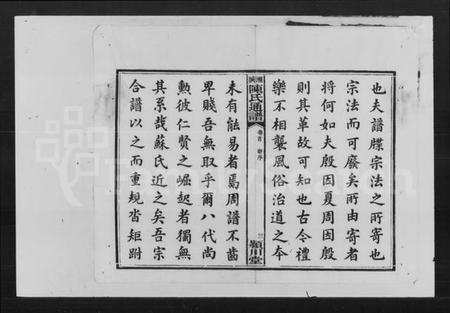 也夫譜牒宗法之所寄也
宗法而可廢矣所由寄者
將何如夫殷因夏周因殷
則其革故可知也古今禮
樂不相襲風俗治道之本
陳氏通譜
卷首
三
潁川堂
未有能易者焉周譜不齒
卑賤吾無取乎爾八代尚
勲彼仁賢之崛起者獨無
其系哉蘇氏近之矣吾宗
合譜以之而重規沓矩跗